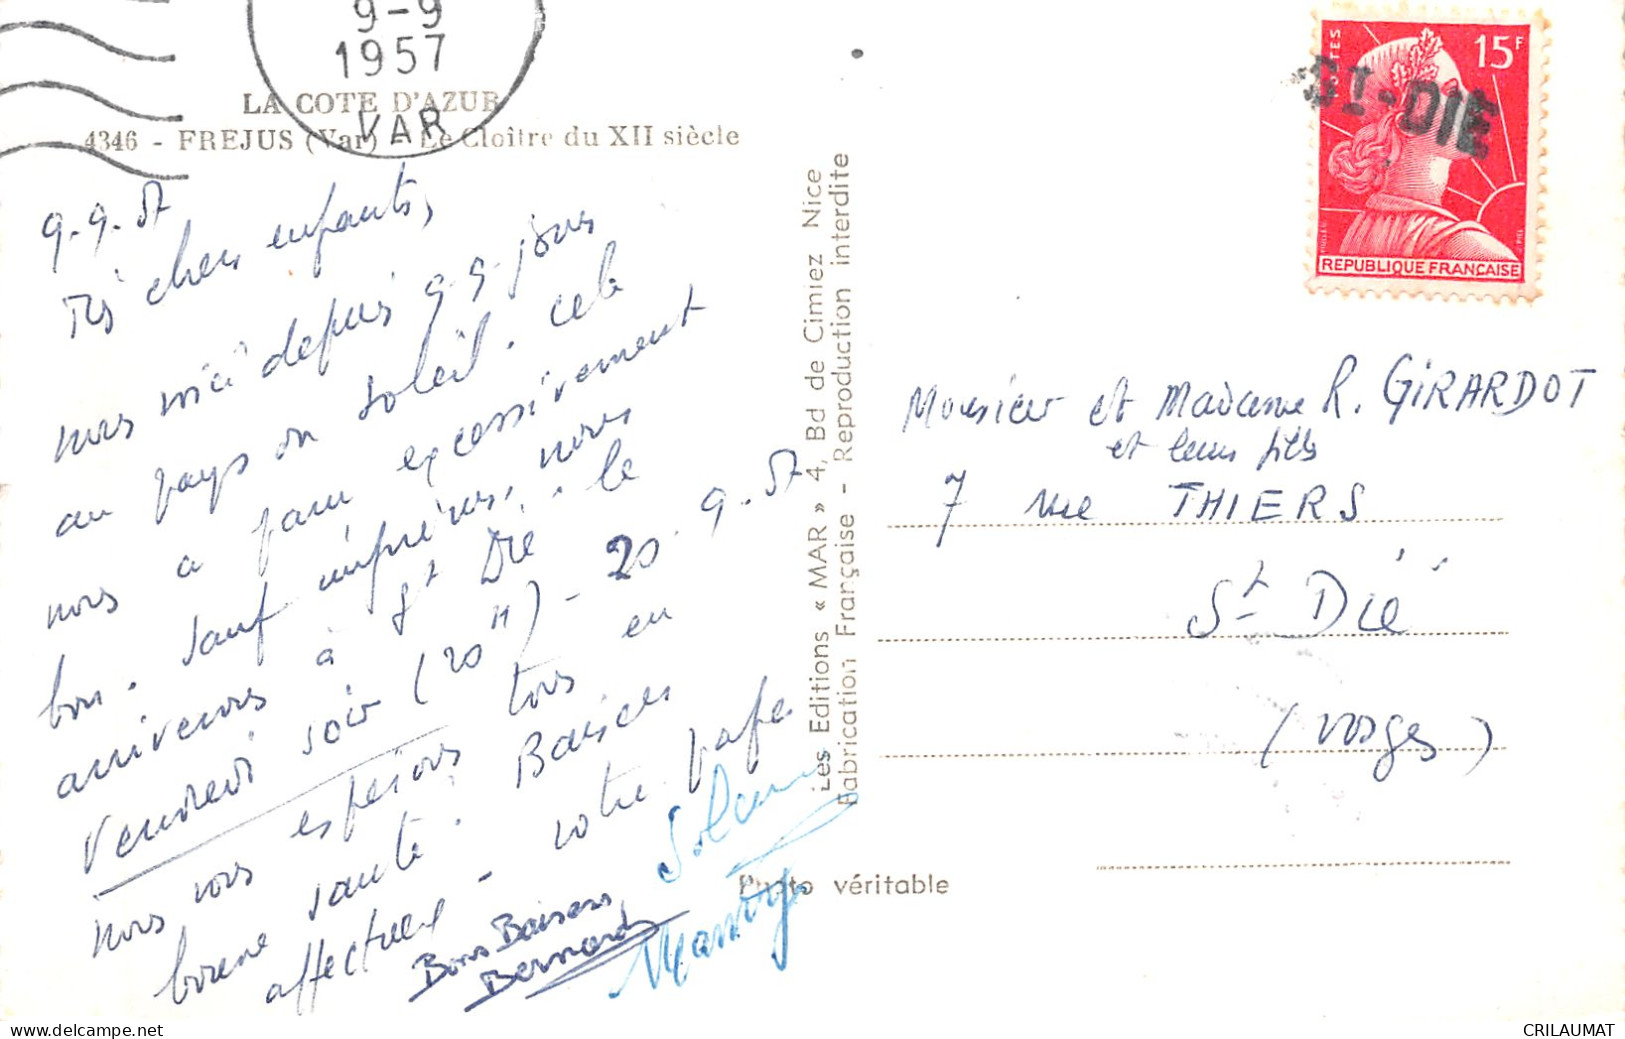 9-9
1957
VAR
LA COTE D'AZUR
4346 - FREJUS (Var) - Le Cloître du XII siècle
9.9.57
Très chers enfants,
nous voici depuis qq. jours
au pays du soleil. cela
nous a paru excessivement
bon. Sauf imprévus, nous
arriverons à St Dié le
Vendredi soir (20 H) - 20.9.57
nous vous espérons tous en
bonne santé. Baisers
affectueux - votre papa
Bons Baisers
Bernard
Solange
Mamy
Les Editions « MAR » 4, Bd de Cimiez Nice
Fabrication Française - Reproduction interdite
Photo véritable
POSTES
15F
ST-DIE
REPUBLIQUE FRANÇAISE
Monsieur et Madame R. GIRARDOT
et leurs fils
7 rue THIERS
St Dié
(Vosges)
www.delcampe.net
CRILAUMAT